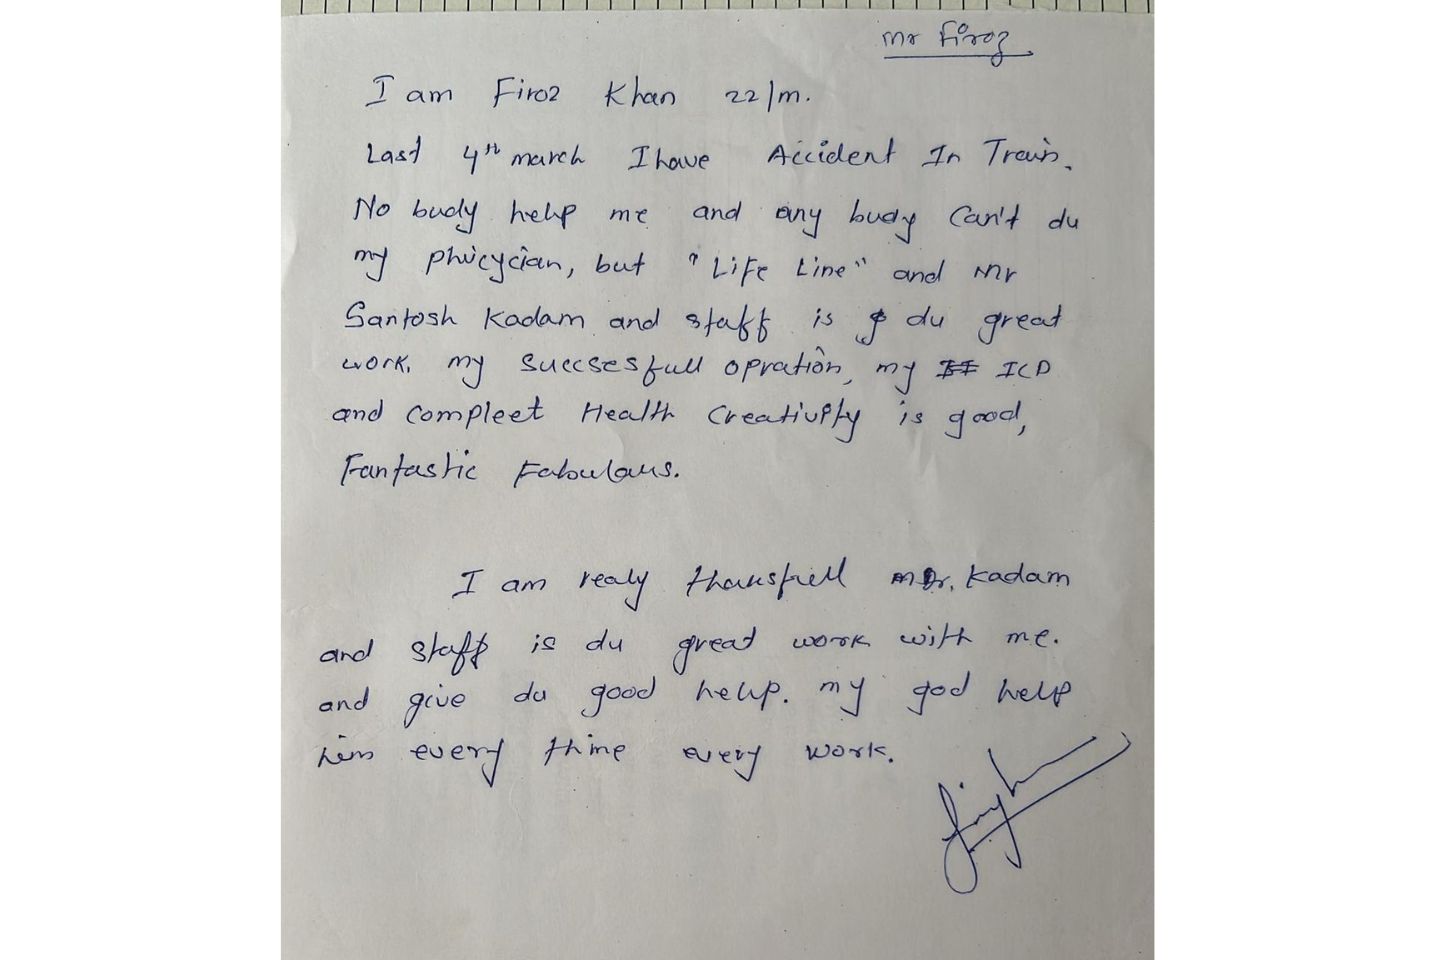 Mr Firoz
I am Firoz Khan 22/m.
Last 4th march I have Accident In Train.
No budy help me and any budy Can't du
my phicycian, but "Life Line" and Mr
Santosh Kadam and staff is du great
work. my Succsesfull opration, my ICD
and compleet Health Creativity is good,
Fantastic Fabulous.
I am realy Dr. Kadam
and staff is du great work with me.
and give du good help. my god help
him every thine every work.